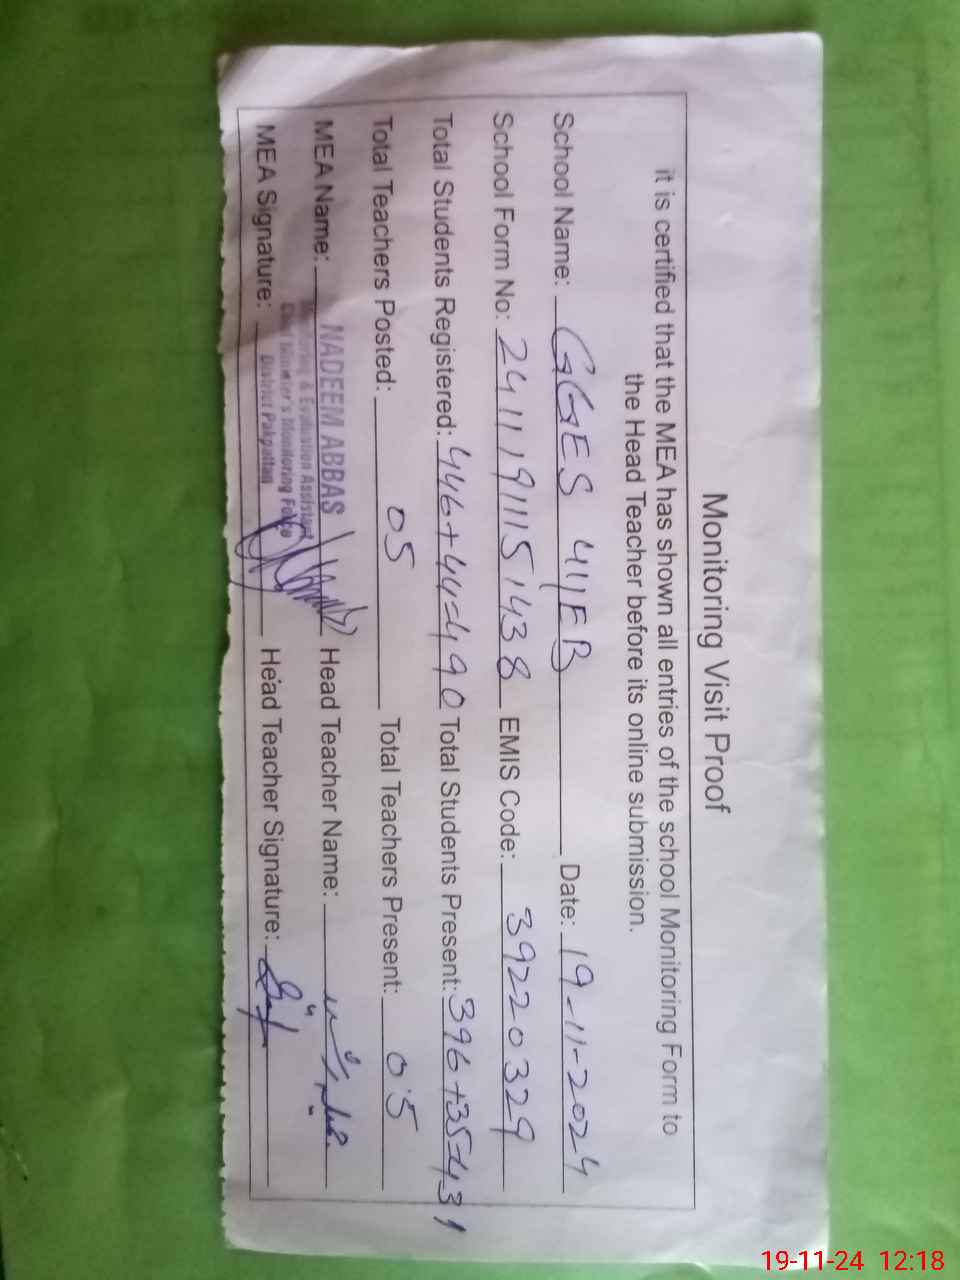 Monitoring Visit Proof
it is certified that the MEA has shown all entries of the school Monitoring Form to
the Head Teacher before its online submission.
School Name: GGES 41/EB Date: 19-11-2024
School Form No: 2411191115143 8 EMIS Code: 39220329
Total Students Registered: 446+44=490 Total Students Present: 396+35=431
Total Teachers Posted: 05 Total Teachers Present: 05
MEA Name: NADEEM ABBAS Head Teacher Name:
Monitoring & Evaluation Assistant
Chief Minister's Monitoring Force
District Pakpattan
MEA Signature: Head Teacher Signature:
19-11-24 12:18